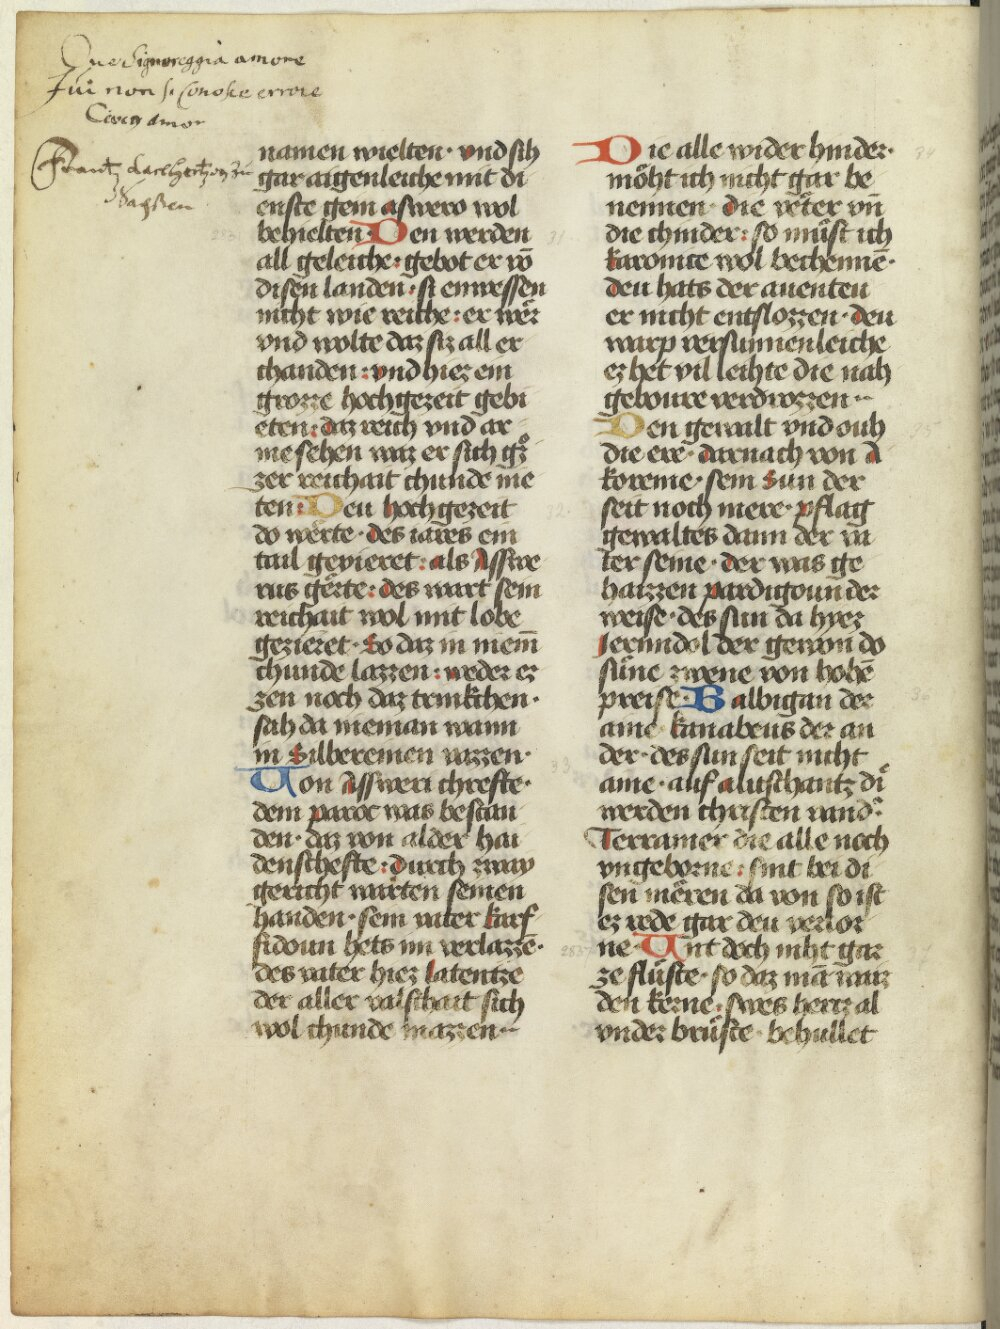 Que Signoreggia amore
Iui non si Conosce errore
amor
Frantz Carll hertzog zu
Sachßen
namen wielten· vnd sih
gar aigenleiche mit di
enste gem aswero wol
behielten· Den werden
all geleiche: gebot er vō
disen landen· si enwessen
nicht wie reiche: er wër
vnd wolte daz siz all er
chanden: vnd hiez ein
grozze hochgezeit gebi
eten: daz reich vnd ar
me sehen waz er sich gͦz
zer reichait chunde nie
ten: Deu hochgezeit
do wërte· des iares ein
tail gevieret: als Asswe
rus gërte: des wart sein
reichait wol mit lobe
gezieret· So daz in niem̄
chunde lazzen: weder ez
zen noch daz trinkchen·
sah da nieman wann
in Silbereinen vazzen·
Von Assweri chrefte·
dem paroc was bestan
den· daz von alder hai
denschefte: durch zway
gericht warten seinen
handen· sein vater karf
fidoun hets im verlazzē·
des vater hiez latentze
der aller valschait sich
wol chunde mazzen··
Die alle wider hinder·
möht ich nicht gar be
nennen· die veter vn̄
die chinder: so müst ich
karonice wol bechennē·
deu hats der auenteu
er nicht entslozzen· deu
warp versunnenleiche
ez het vil leihte die nah
geboure verdrozzen··
Den gewalt vnd ouh
die ere· darnach von A
koreine· sein Sun der
seit noch mere· pflag
gewaltes dann der va
ter seine· der was ge
haizzen pardigoun der
weise· des sun da hyez
Jerundol der gewan do
süne zwene von hohē
preise· Balbigan der
aine· kanabeus der an
der· des sun seit nicht
aine· auf alitschantz di
werden christen vand·
Terramer die alle noch
vngeborne: sint bei di
sen mëren da von so ist
ez rede gar deu verlor
ne· Vnt doch niht gar
ze flüste· so daz mā vinz
den kerne· swes hertz al
vnder brüste· behullet